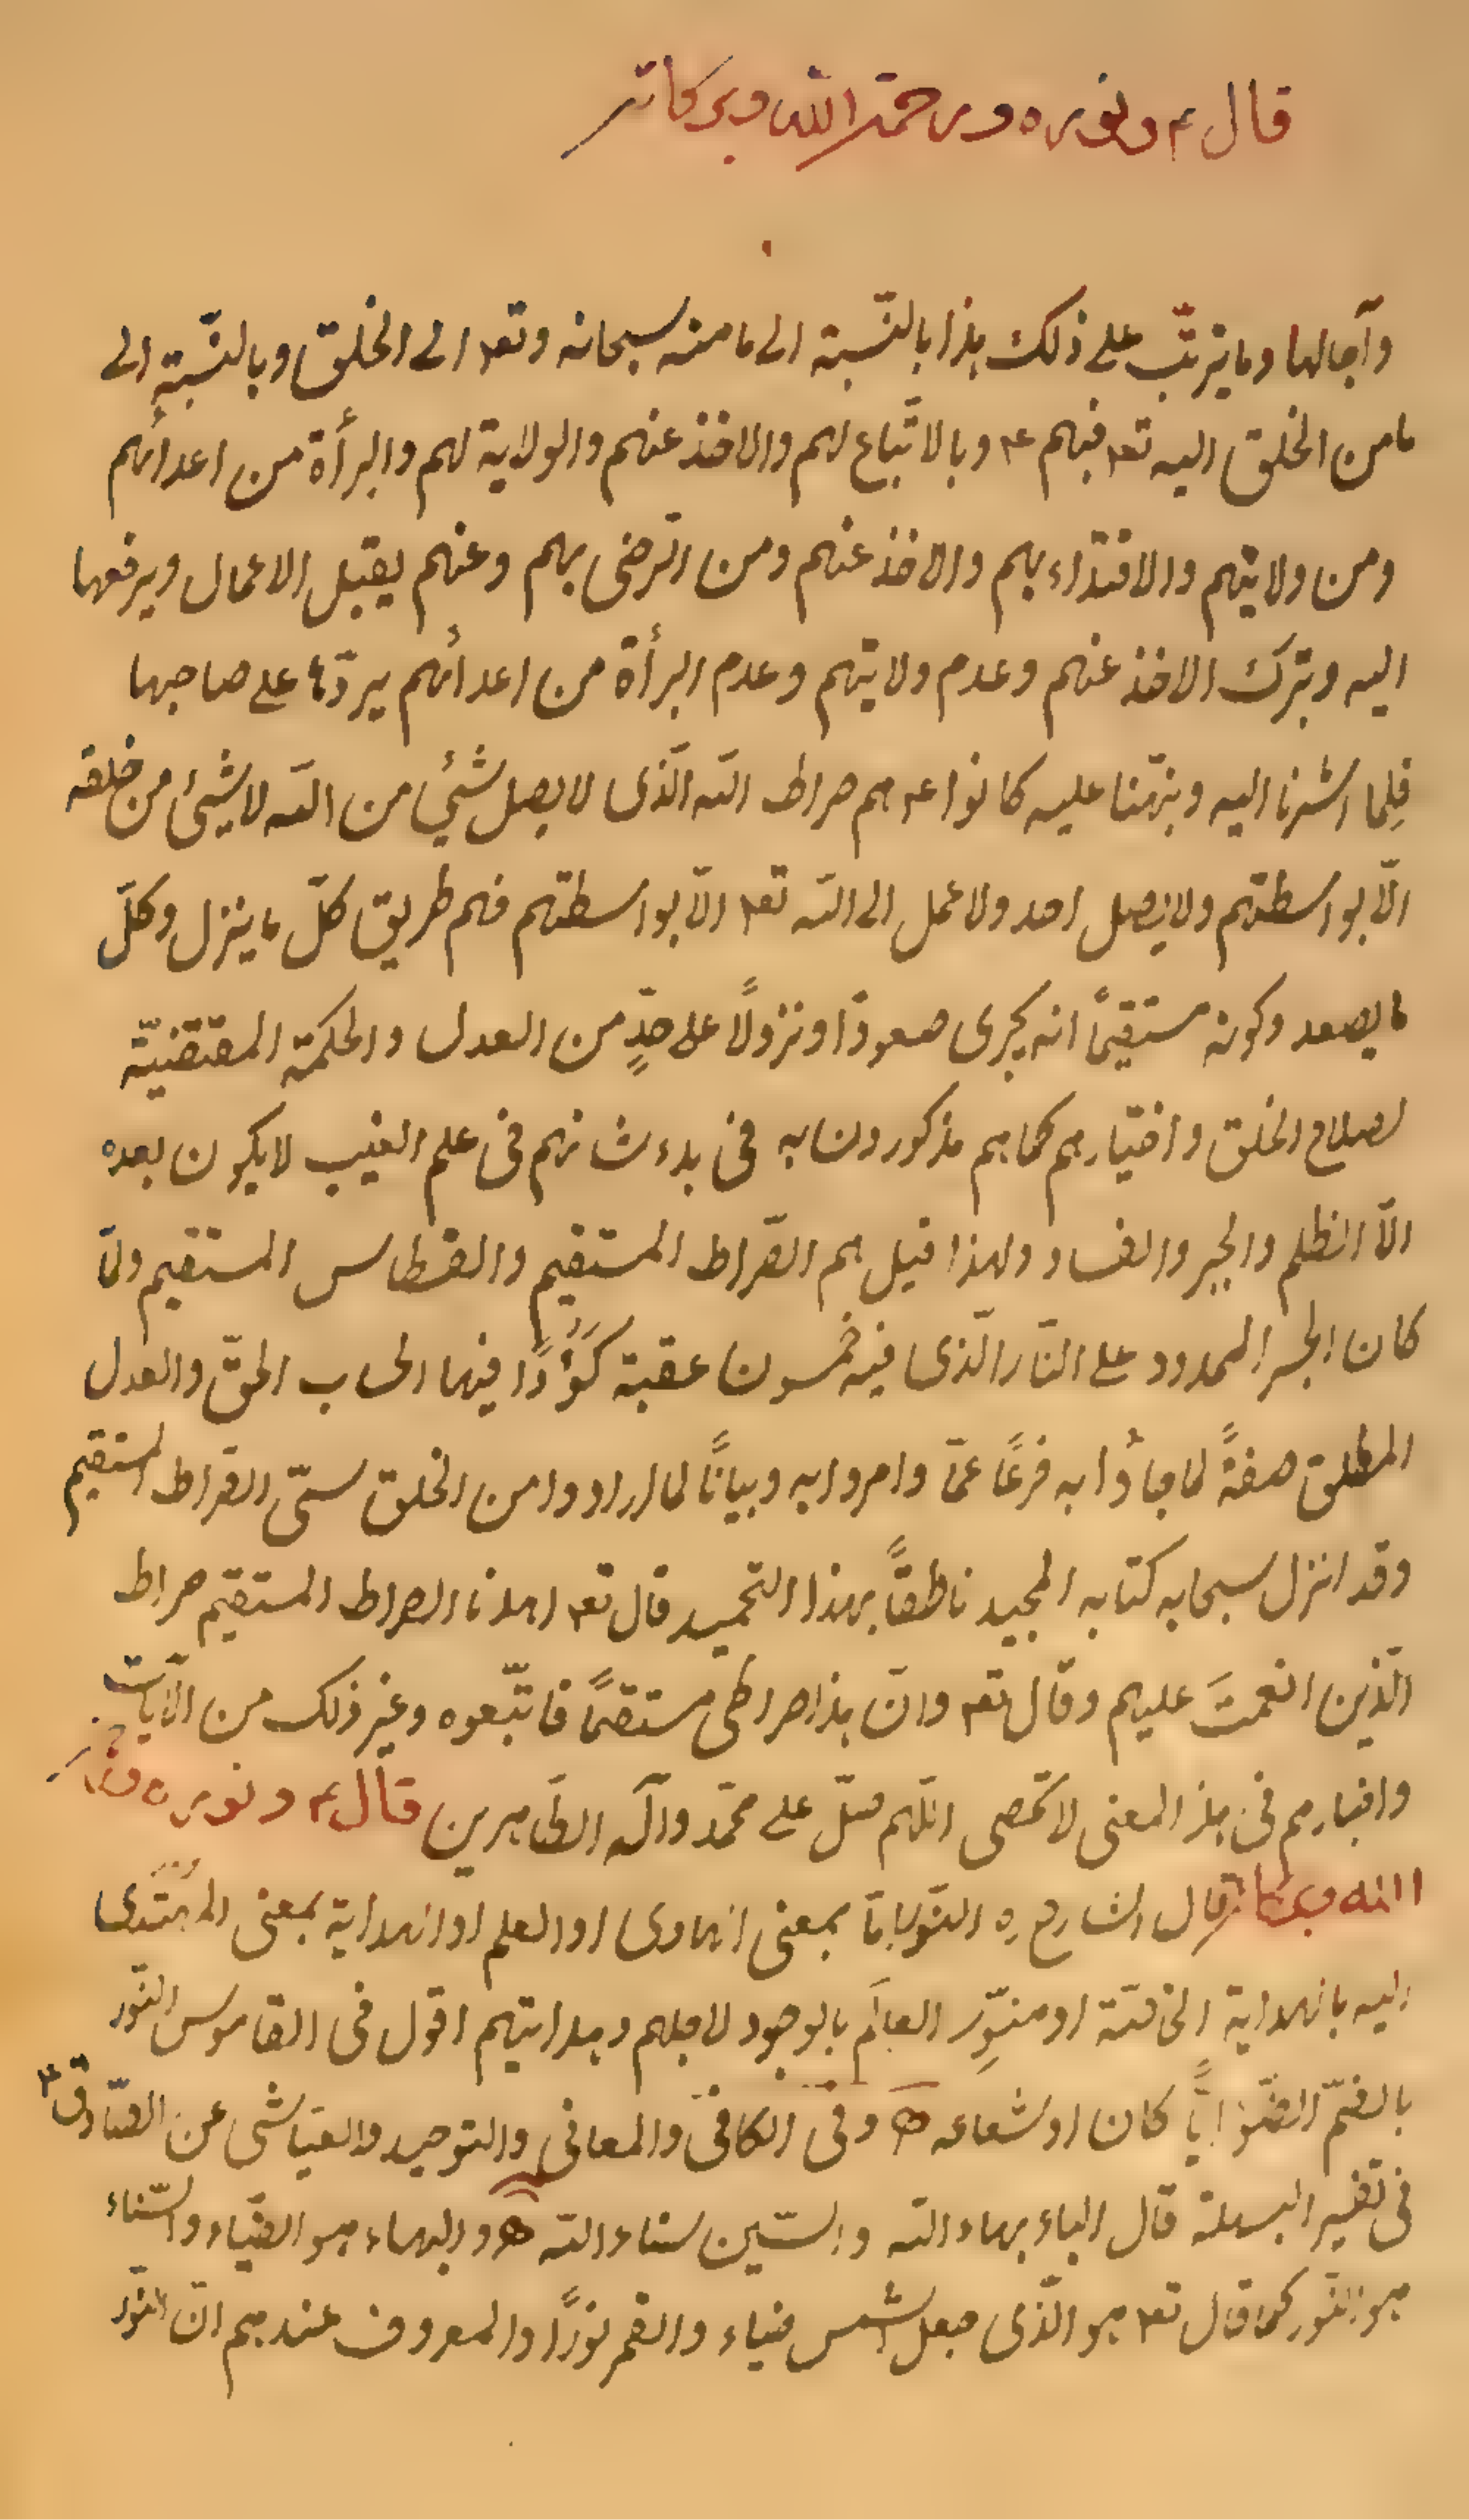 قال ع ونوره ورحمة الله وبركاته
وآجالها وما يترتّب على ذلك هذا بالنّسبة الى ما منه سبحانه وتعـ الى الخلق وبالنّسبة الى
ما من الخلق اليه تعـ فبهم ع وبالاتّباع لهم والاخذ عنهم والولاية لهم والبرأة من اعدائهم
ومن ولايتهم والاقتداء بهم والاخذ عنهم ومن الترضى بهم وعنهم يقبل الاعمال ويرفعها
اليه وبترك الاخذ عنهم وعدم ولايتهم وعدم البرأة من اعدائهم يردّها على صاحبها
فلِما اشرنا اليه ونبّهنا عليه كانوا ع هم صراط الله الّذى لا يصل شئ من الله لا شئ من خلقه
الّا بواسطتهم ولا يصل احد ولا عمل الى الله تعـ الّا بواسطتهم فهم طريق كلّ ما ينزل وكلّ
ما يصعد وكونه مستقيمًا انه يجرى صعودًا ونزولًا على حدٍّ من العدل والحكمة المقتضيّة
لصلاح الخلق واختيارهم كما هم مذكورون به فى بدء شانهم فى علم الغيب لا يكون بعده
الّا الظلم والجبر والفساد ولهذا قيل هم الصّراط المستقيم والقسطاس المستقيم ولمّا
كان الجسر الممدود على النّار الّذى فيه خمسون عقبة كَؤُدًا فيها الحساب الحقّ والعدل
المطلق صفةً لما جاؤا به فرعًا عمّا وامروا به وبيانًا لما ارادوا من الخلق سمّى الصّراط المستقيم
وقد انزل سبحانه كتابه المجيد ناطقًا بهذا التحميد قال تعـ اهدنا الصراط المستقيم صراط
الّذين انعمتَ عليهم وقال تعـ وانّ هذا صراطى مستقيمًا فاتّبعوه وغير ذلك من الآيات
واخبارهم فى هذ المعنى لا تحصى اللّهم صلّ على محمّد وآله الطّاهرين قال ع ونوره ورحمة
الله وبركاته قال الشارح ره النّور امّا بمعنى الهادى او العلم او الهداية بمعنى المهتدى
اليه بالهداية الخاصّة او منوِّر العالَم بالوجود لاجلهم وهدايتهم اقول فى القاموس النّور
بالضمّ الضّوء ايًّا كان او شعاعه وفى الكافى والمعانى والتوحيد والعيّاشى عن الصّادق ع
فى تفسير البسملة قال الباء بهاء الله والسّين سناء الله والبهاء هو الضّياء والسّناء
هو النّور كما قال تعـ هو الّذى جعل الشمس ضياء والقمر نورًا والمعروف عندهم انّ النّور